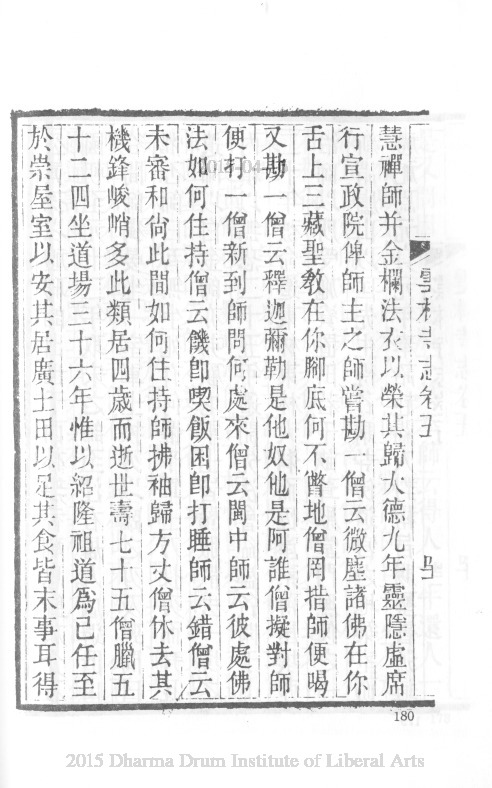 慧禪師并金襴法衣以榮其歸大德九年靈隱虛席
行宣政院俾師主之師嘗勘一僧云微塵諸佛在你
舌上三藏聖教在你腳底何不瞥地僧罔措師便喝
又勘一僧云釋迦彌勒是他奴他是阿誰僧擬對師
便打一僧新到師問何處來僧云閩中師云彼處佛
法如何住持僧云饑即喫飯困即打睡師云錯僧云
未審和尙此間如何住持師拂袖歸方丈僧休去其
機鋒峻峭多此類居四歲而逝世壽七十五僧臘五
十二四坐道場三十六年惟以紹隆祖道爲己任至
於崇屋室以安其居廣土田以足其食皆末事耳得
雲林寺志卷五
180
2015 Dharma Drum Institute of Liberal Arts